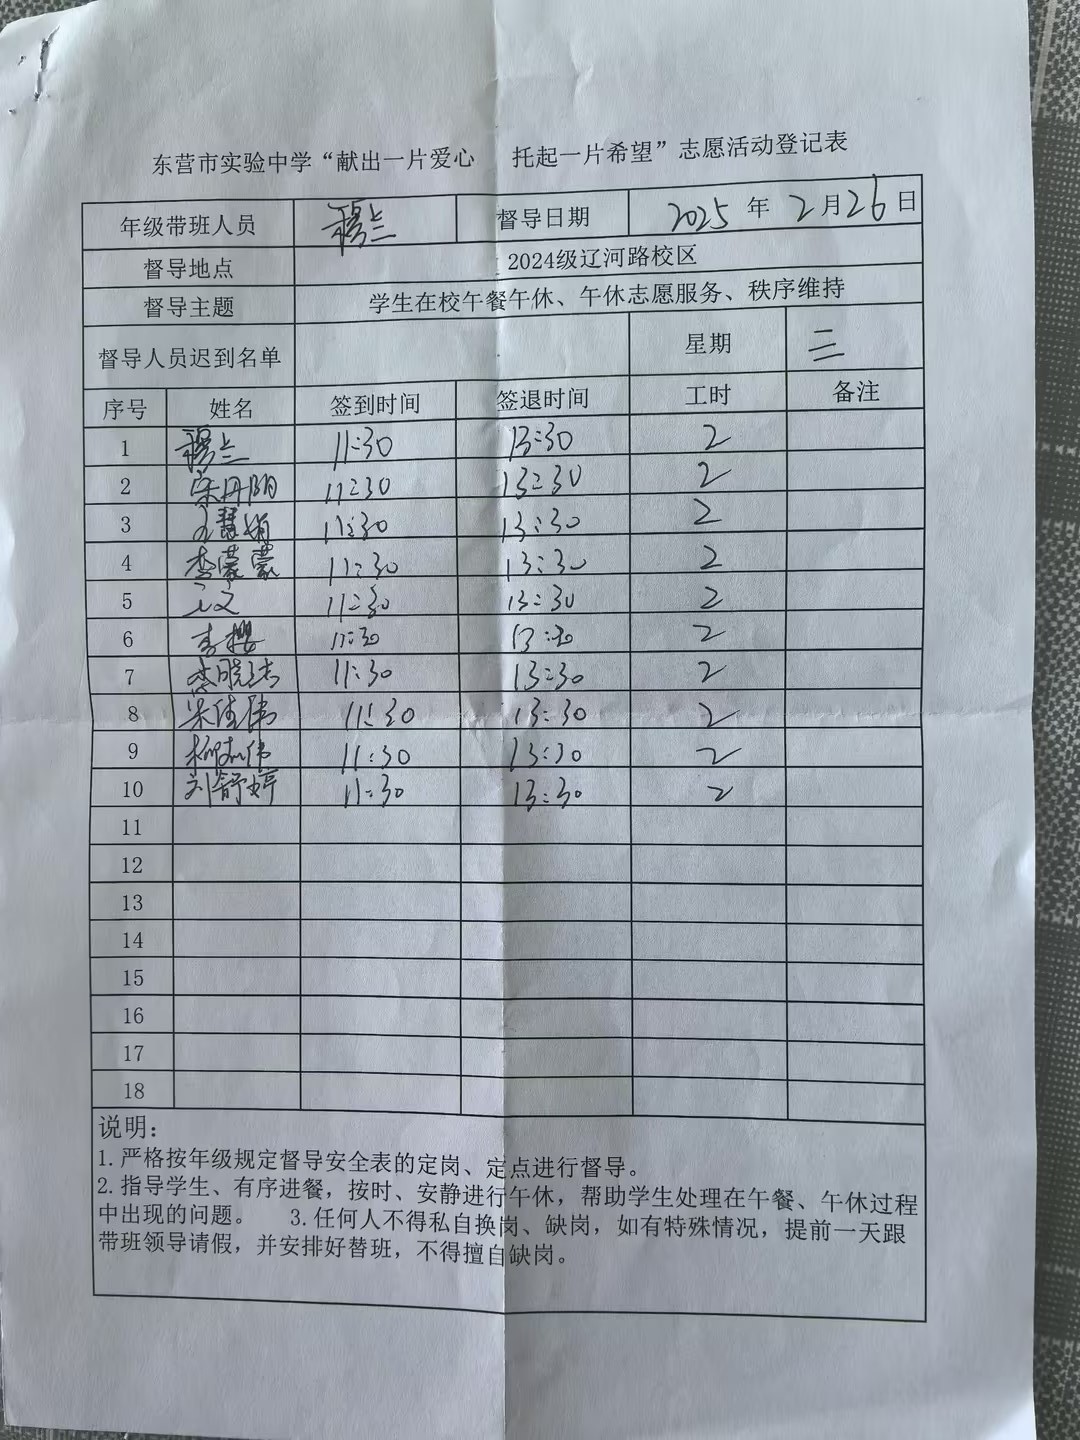 东营市实验中学“献出一片爱心 托起一片希望”志愿活动登记表
年级带班人员 穆兰 督导日期 2025 年 2 月 26 日
督导地点 2024级辽河路校区
督导主题 学生在校午餐午休、午休志愿服务、秩序维持
督导人员迟到名单 星期 三
序号 姓名 签到时间 签退时间 工时 备注
1 穆兰 11:30 13:30 2
2 宋丹丽 11:30 13:30 2
3 王慧娟 11:30 13:30 2
4 李蒙蒙 11:30 13:30 2
5 11:30 13:30 2
6 李樱 11:30 13:30 2
7 11:30 13:30 2
8 宋佳伟 11:30 13:30 2
9 11:30 13:30 2
10 刘舒婷 11:30 13:30 2
11
12
13
14
15
16
17
18
说明：
1.严格按年级规定督导安全表的定岗、定点进行督导。
2.指导学生、有序进餐，按时、安静进行午休，帮助学生处理在午餐、午休过程
中出现的问题。 3.任何人不得私自换岗、缺岗，如有特殊情况，提前一天跟
带班领导请假，并安排好替班，不得擅自缺岗。